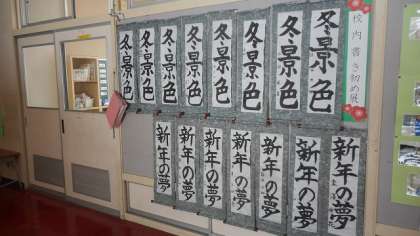 校内書き初め展
冬景色
冬景色
冬景色
冬景色
冬景色
冬景色
冬景色
冬景色
新年の夢
新年の夢
新年の夢
新年の夢
新年の夢
新年の夢
新年の夢
新年の夢